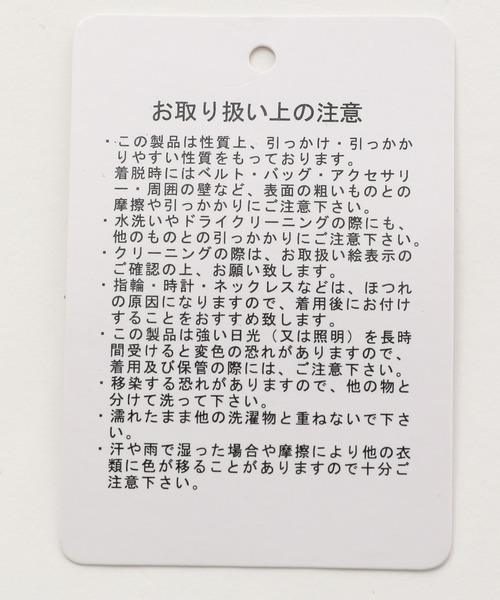 お取り扱い上の注意
・この製品は性質上、引っかけ・引っかか
りやすい性質をもっております。
着脱時にはベルト・バッグ・アクセサリ
ー・周囲の壁など、表面の粗いものとの
摩擦や引っかかりにご注意下さい。
・水洗いやドライクリーニングの際にも、
他のものとの引っかかりにご注意下さい。
・クリーニングの際は、お取扱い絵表示の
ご確認の上、お願い致します。
・指輪・時計・ネックレスなどは、ほつれ
の原因になりますので、着用後にお付け
することをおすすめ致します。
・この製品は強い日光（又は照明）を長時
間受けると変色の恐れがありますので、
着用及び保管の際には、ご注意下さい。
・移染する恐れがありますので、他の物と
分けて洗って下さい。
・濡れたまま他の洗濯物と重ねないで下さ
い。
・汗や雨で湿った場合や摩擦により他の衣
類に色が移ることがありますので十分ご
注意下さい。